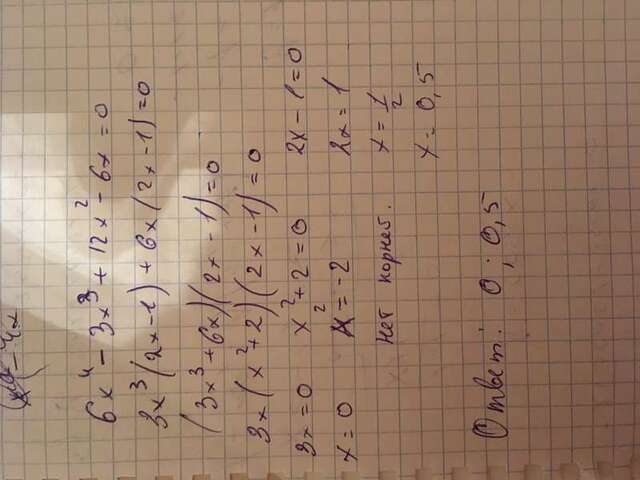 x - 4x
6x⁴ - 3x³ + 12x² - 6x = 0
3x³(2x-1) + 6x(2x-1) = 0
(3x³+6x)(2x-1) = 0
3x(x²+2)(2x-1) = 0
3x = 0 x²+2 = 0 2x-1 = 0
x = 0 x² = -2 2x = 1
нет корней. x = 1/2
x = 0,5
Ответ: 0; 0,5